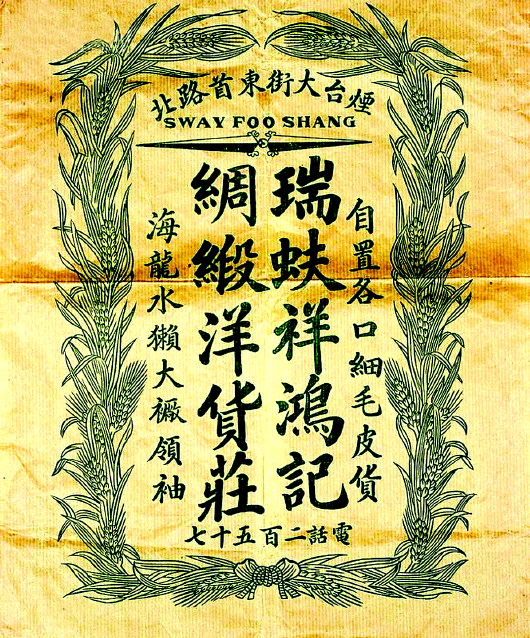 煙台大街東首路北
SWAY FOO SHANG
自置各口細毛皮貨
瑞蚨祥鴻記
綢緞洋貨莊
海龍水獺大襒領袖
電話二百五十七